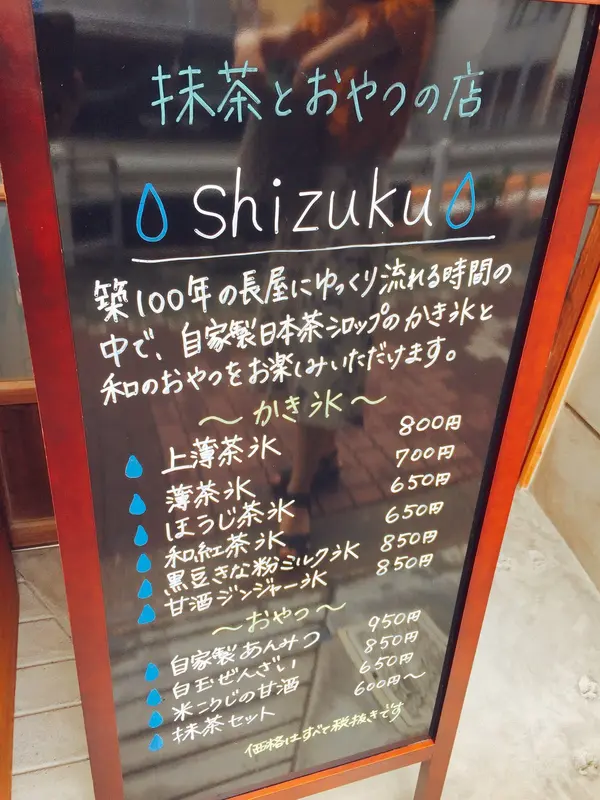 抹茶とおやつの店
shizuku
築100年の長屋にゆっくり流れる時間の
中で、自家製日本茶シロップのかき氷と
和のおやつをお楽しみいただけます。
～かき氷～
上薄茶氷 800円
薄茶氷 700円
ほうじ茶氷 650円
和紅茶氷 650円
黒豆きな粉ミルク氷 850円
甘酒ジンジャー氷 850円
～おやつ～
自家製あんみつ 950円
白玉ぜんざい 850円
米こうじの甘酒 650円
抹茶セット 600円～
価格はすべて税抜きです